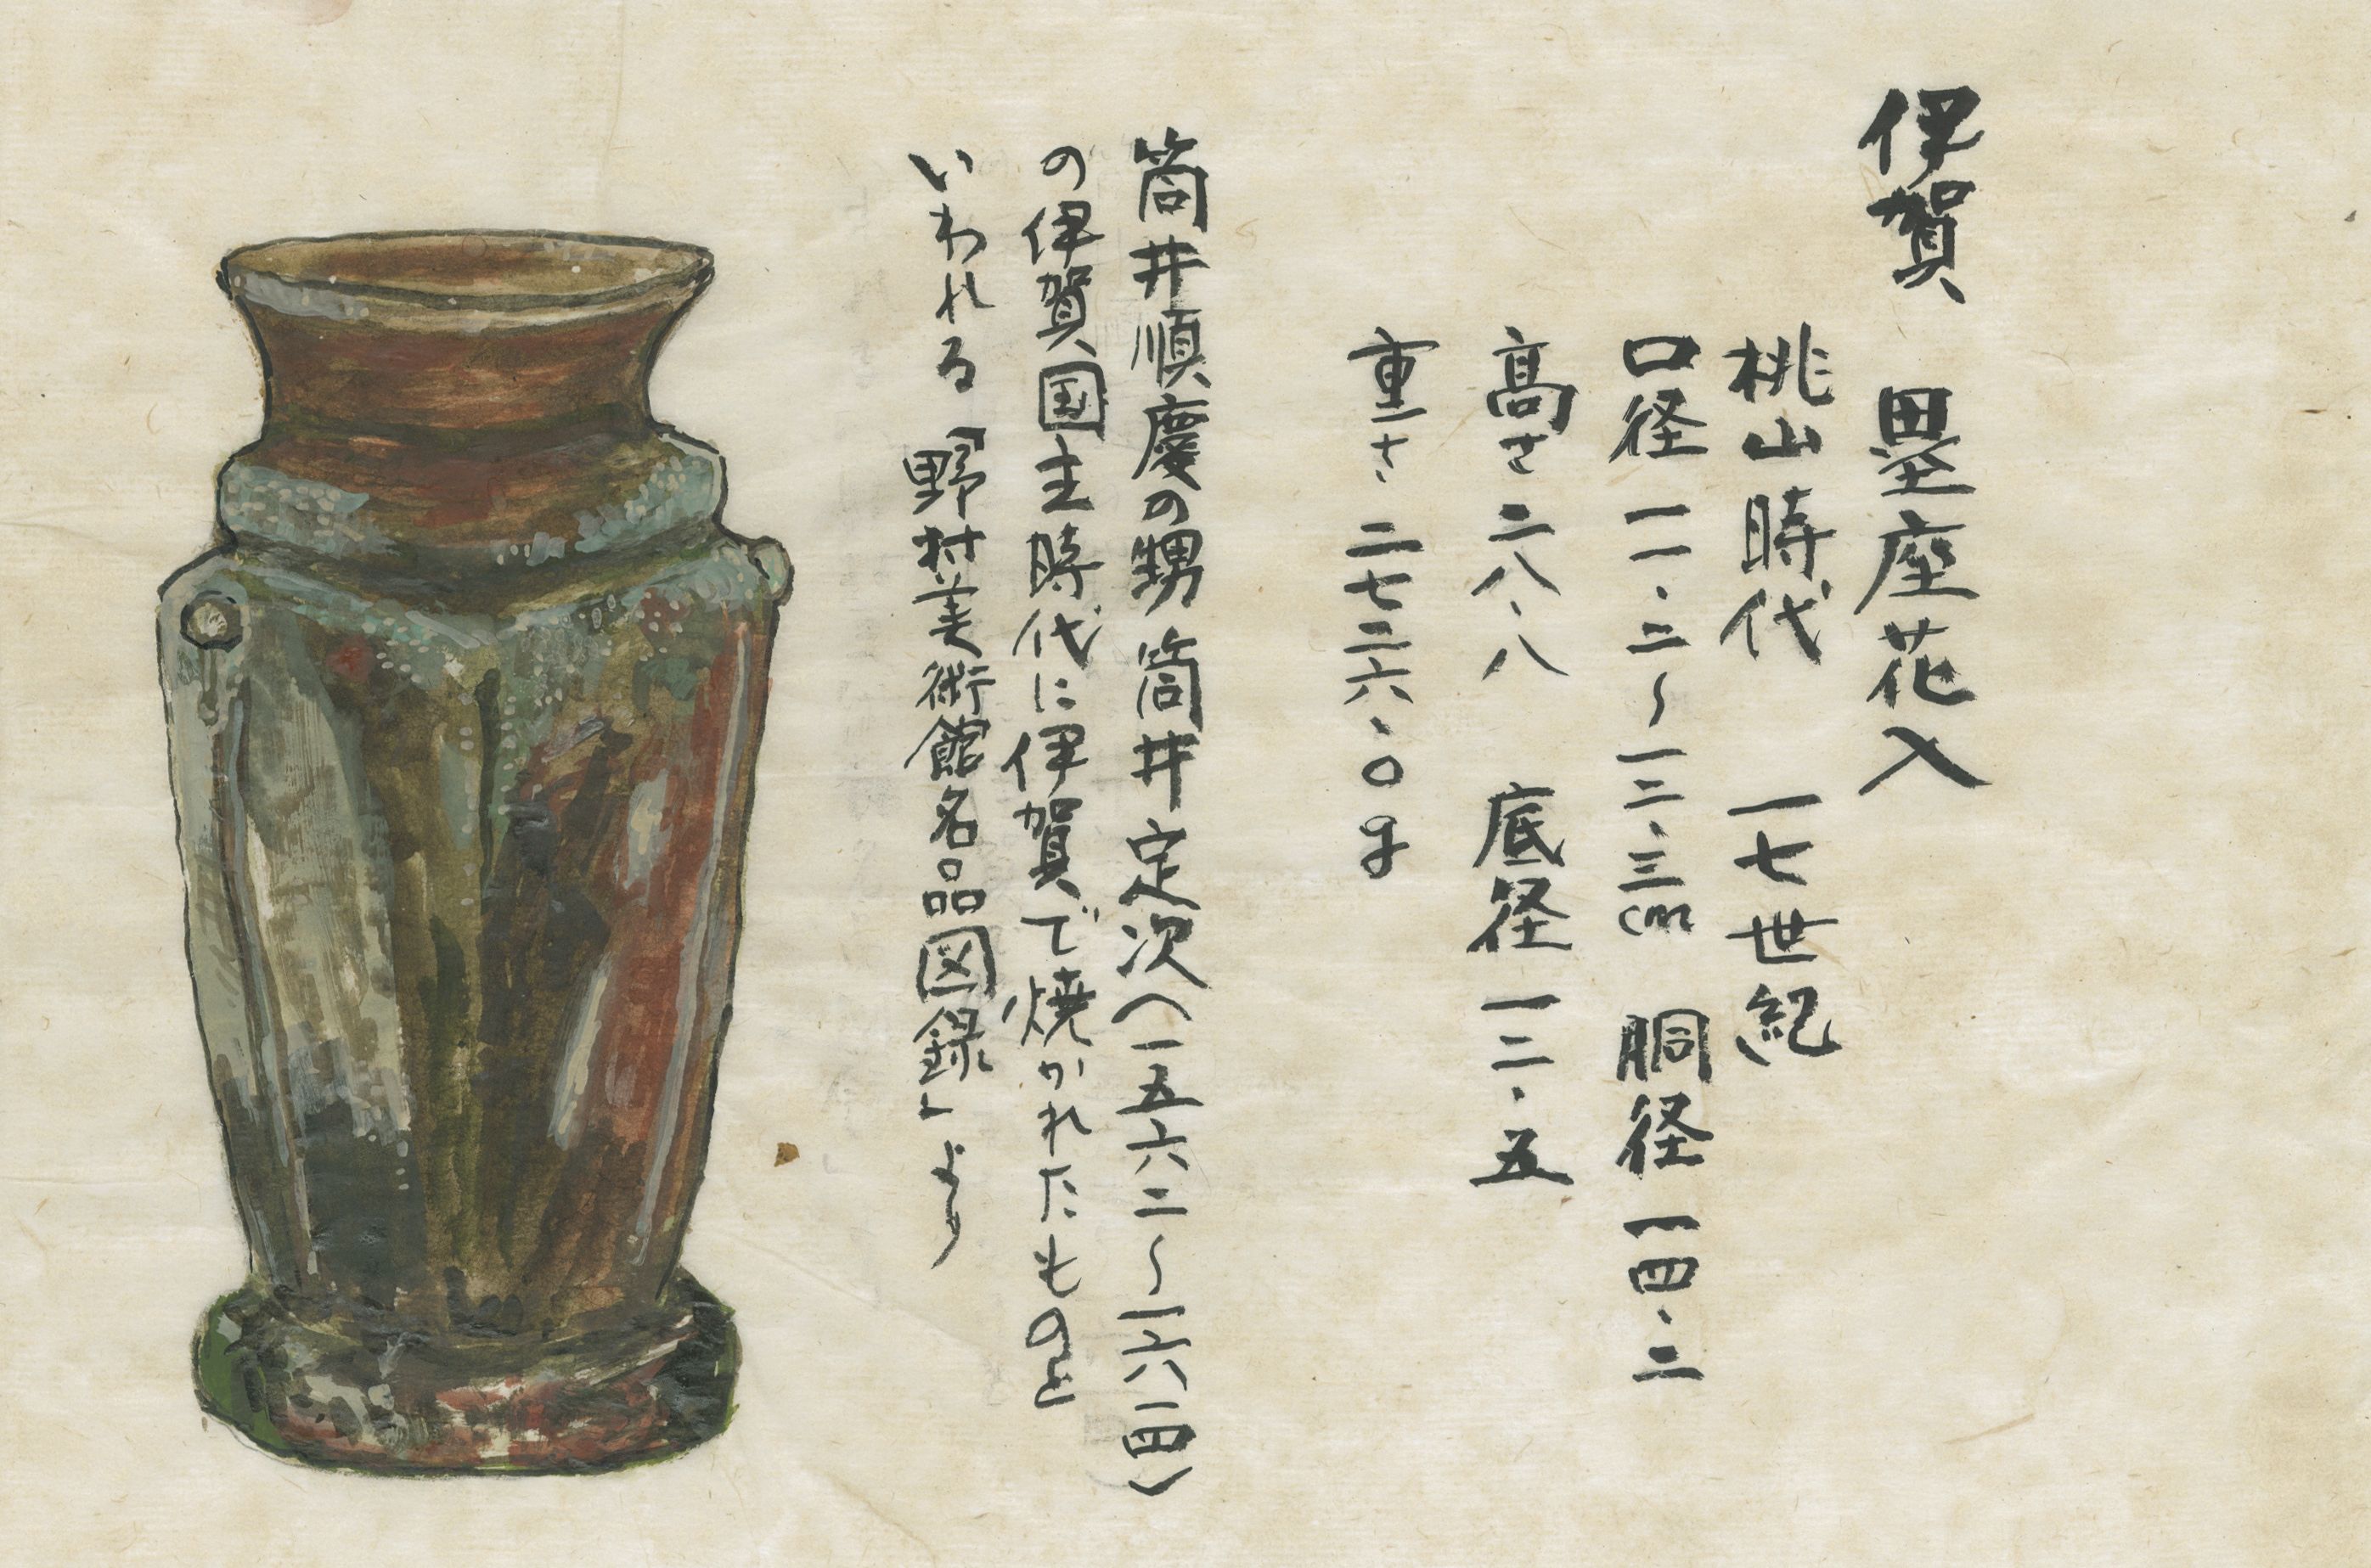 伊賀 塁座花入
桃山時代 一七世紀
口径一一・二〜一二・三cm 胴径一四・二
高さ二八・八 底径一二・五
重さ 二七二六・〇g
筒井順慶の甥 筒井定次(一五六二〜一六一四)
の伊賀国主時代に伊賀で焼かれたものと
いわれる「野村美術館名品図録」より